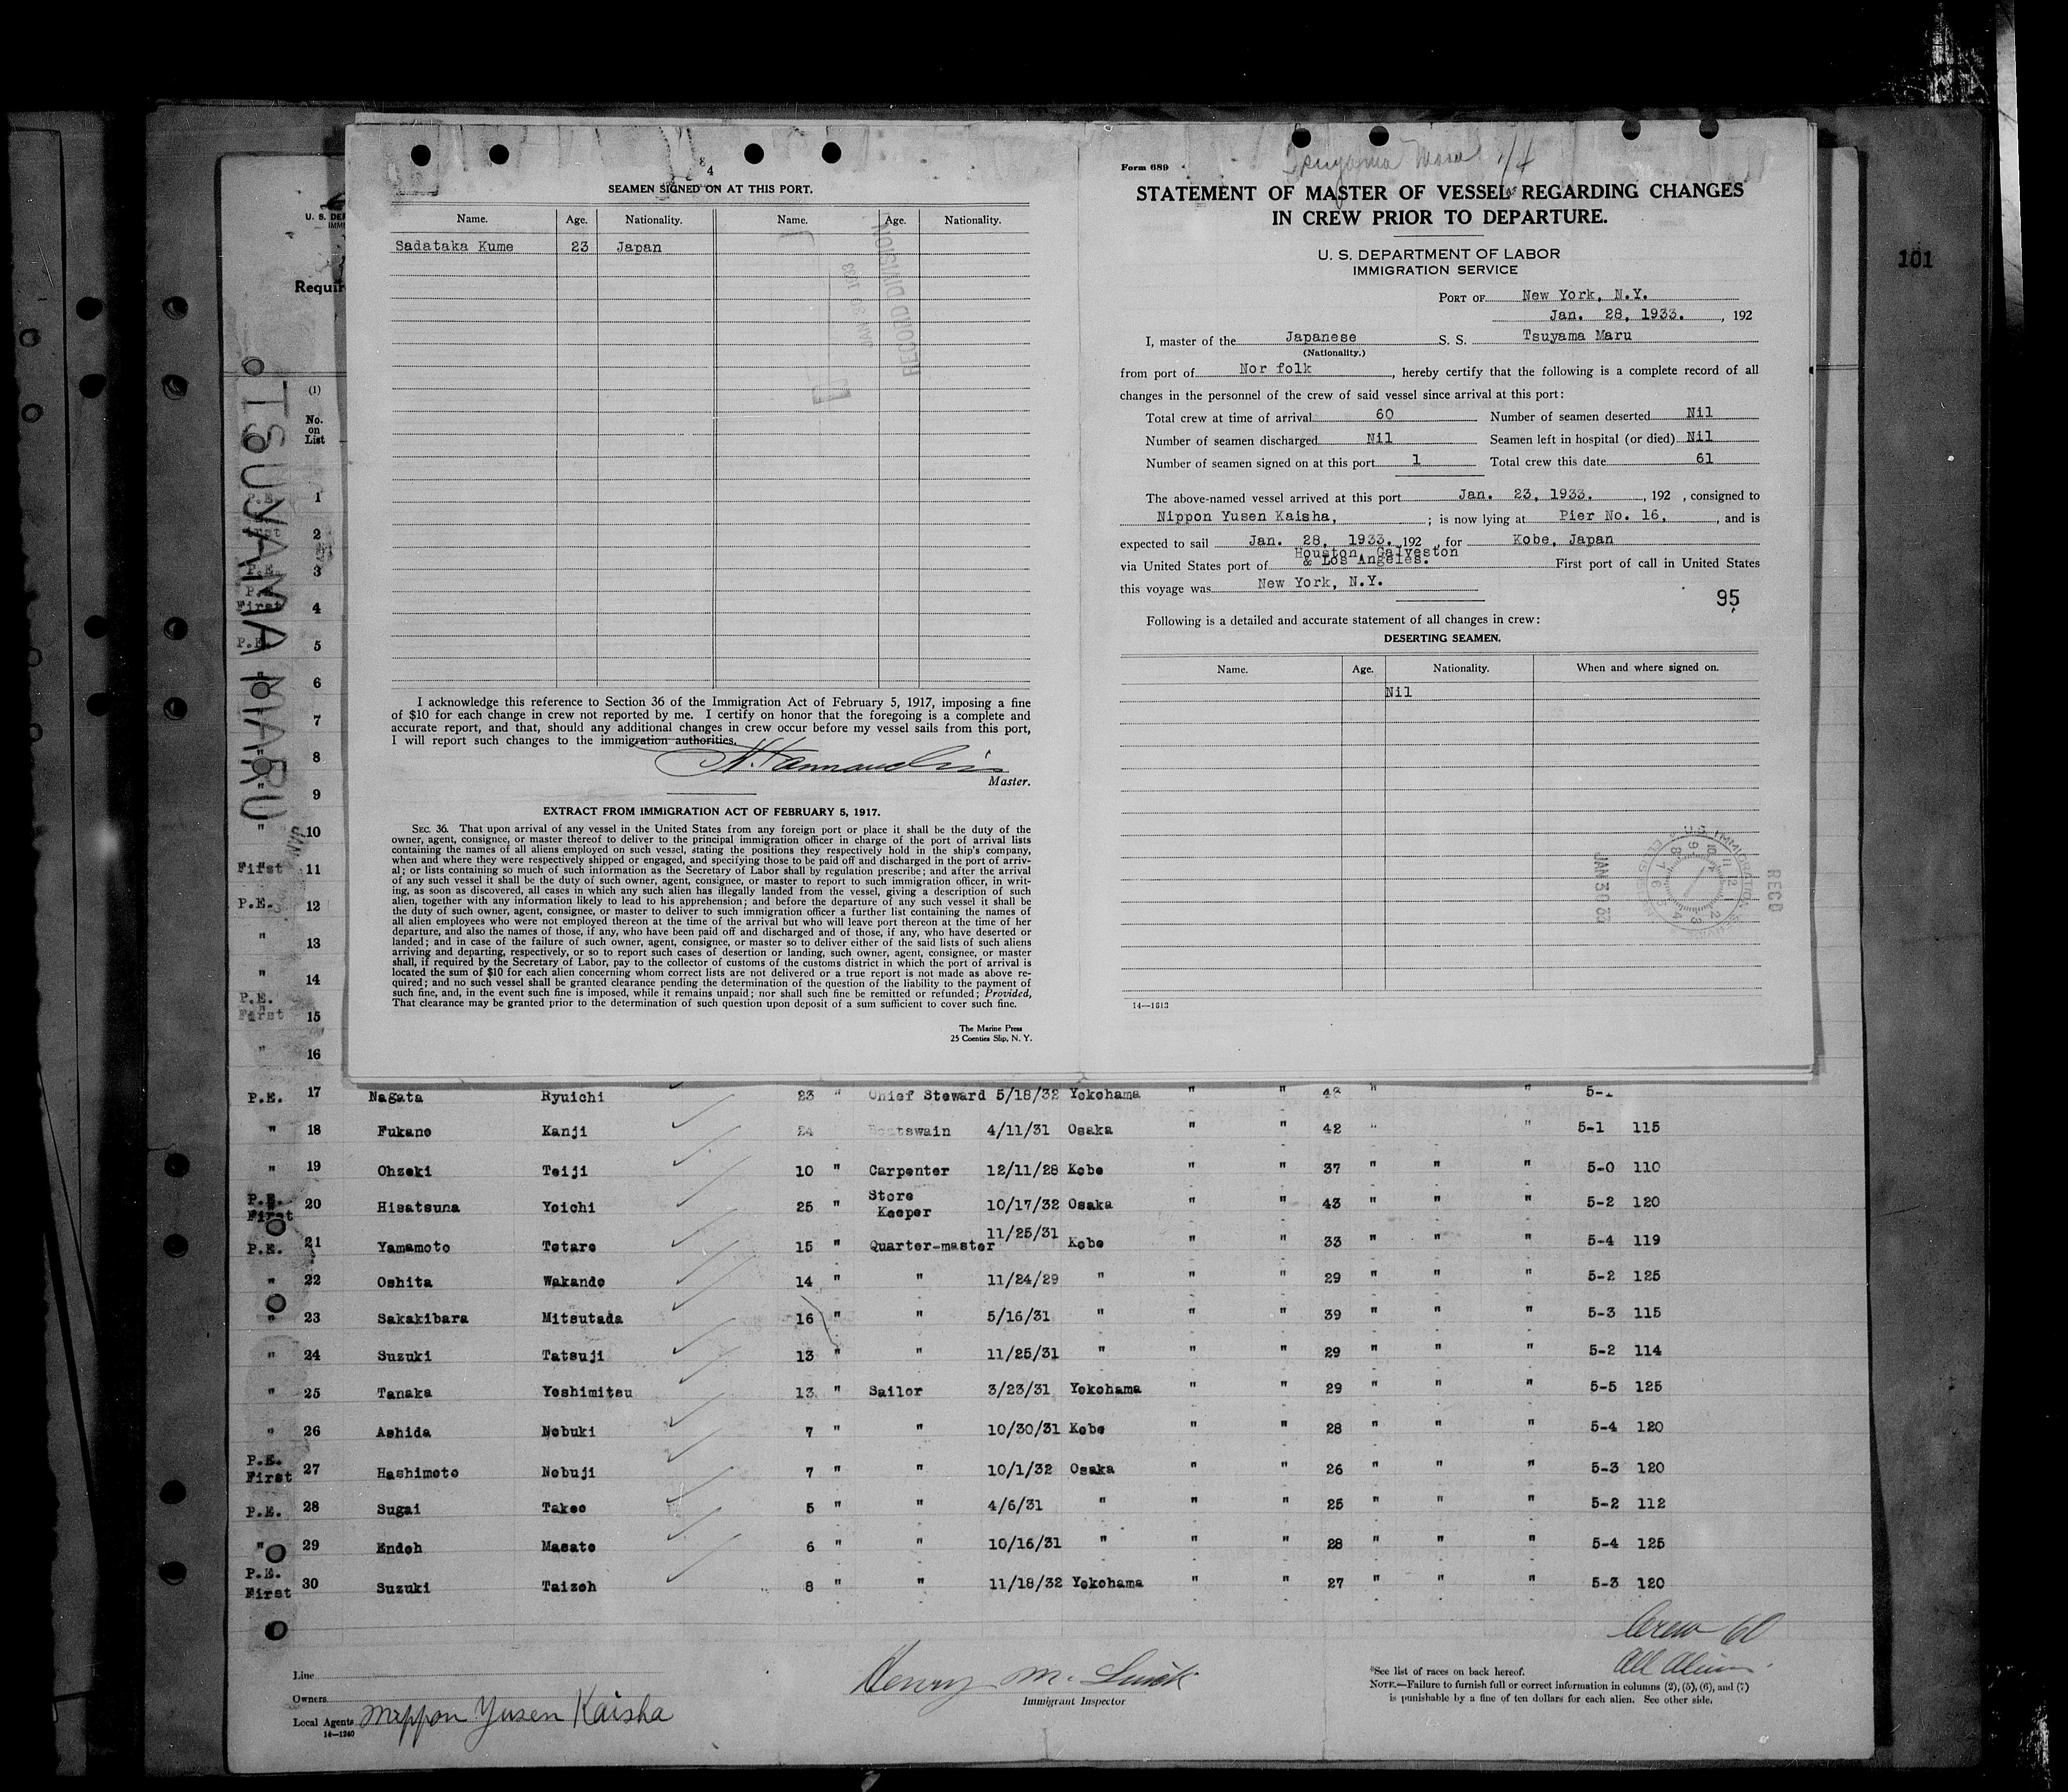 8
4
SEAMEN SIGNED ON AT THIS PORT.
Name. Age. Nationality. Name. Age. Nationality.
Sadataka Kume 23 Japan
RECORD DIVISION
I acknowledge this reference to Section 36 of the Immigration Act of February 5, 1917, imposing a fine
of $10 for each change in crew not reported by me. I certify on honor that the foregoing is a complete and
accurate report, and that, should any additional changes in crew occur before my vessel sails from this port,
I will report such changes to the immigration authorities.
Master.
EXTRACT FROM IMMIGRATION ACT OF FEBRUARY 5, 1917.
SEC. 36. That upon arrival of any vessel in the United States from any foreign port or place it shall be the duty of the
owner, agent, consignee, or master thereof to deliver to the principal immigration officer in charge of the port of arrival lists
containing the names of all aliens employed on such vessel, stating the positions they respectively hold in the ship's company,
when and where they were respectively shipped or engaged, and specifying those to be paid off and discharged in the port of arriv-
al; or lists containing so much of such information as the Secretary of Labor shall by regulation prescribe; and after the arrival
of any such vessel it shall be the duty of such owner, agent, consignee, or master to report to such immigration officer, in writ-
ing, as soon as discovered, all cases in which any such alien has illegally landed from the vessel, giving a description of such
alien, together with any information likely to lead to his apprehension; and before the departure of any such vessel it shall be
the duty of such owner, agent, consignee, or master to deliver to such immigration officer a further list containing the names of
all alien employees who were not employed thereon at the time of the arrival but who will leave port thereon at the time of her
departure, and also the names of those, if any, who have been paid off and discharged and of those, if any, who have deserted or
landed; and in case of the failure of such owner, agent, consignee, or master so to deliver either of the said lists of such aliens
arriving and departing, respectively, or so to report such cases of desertion or landing, such owner, agent, consignee, or master
shall, if required by the Secretary of Labor, pay to the collector of customs of the customs district in which the port of arrival is
located the sum of $10 for each alien concerning whom correct lists are not delivered or a true report is not made as above re-
quired; and no such vessel shall be granted clearance pending the determination of the question of the liability to the payment of
such fine, and, in the event such fine is imposed, while it remains unpaid; nor shall such fine be remitted or refunded; Provided,
That clearance may be granted prior to the determination of such question upon deposit of a sum sufficient to cover such fine.
The Marine Press
25 Coenties Slip, N. Y.
Form 689
Tsuyama Maru 1/4
STATEMENT OF MASTER OF VESSEL REGARDING CHANGES
IN CREW PRIOR TO DEPARTURE.
U. S. DEPARTMENT OF LABOR
IMMIGRATION SERVICE
PORT OF New York, N.Y.
Jan. 28, 1933. , 192
I, master of the Japanese S. S. Tsuyama Maru
(Nationality.)
from port of Nor folk , hereby certify that the following is a complete record of all
changes in the personnel of the crew of said vessel since arrival at this port:
Total crew at time of arrival 60 Number of seamen deserted Nil
Number of seamen discharged Nil Seamen left in hospital (or died) Nil
Number of seamen signed on at this port 1 Total crew this date 61
The above-named vessel arrived at this port Jan. 23, 1933. , 192 , consigned to
Nippon Yusen Kaisha, ; is now lying at Pier No. 16, , and is
expected to sail Jan. 28, 1933. , 192 , for Kobe, Japan
Houston, Galveston
via United States port of & Los Angeles. First port of call in United States
this voyage was New York, N.Y.
95
Following is a detailed and accurate statement of all changes in crew:
DESERTING SEAMEN.
Name. Age. Nationality. When and where signed on.
Nil
U.S. IMMIGRATION
JAN 30 33
RECD
14—1613
101
TSUYAMA MARU
(1)
No.
on
List
P.E. 1
2
P.E. 3
First 4
P.E. 5
6
7
8
9
" 10
First 11
P.E. 12
" 13
" 14
P.E.
First 15
" 16
P.E. 17 Nagata Ryuichi 23 " Chief Steward 5/18/32 Yokohama " " "
" 18 Fukano Kanji 24 Boatswain 4/11/31 Osaka " " 42 " " 5-1 115
" 19 Ohzeki Teiji 10 " Carpenter 12/11/28 Kobe " " 37 " " " 5-0 110
P.E.
First 20 Hisatsuna Yoichi 25 " Store Keeper 10/17/32 Osaka " " 43 " " " 5-2 120
P.E. 21 Yamamoto Totaro 15 " Quarter-master 11/25/31 Kobe " " 33 " " " 5-4 119
" 22 Oshita Wakando 14 " " 11/24/29 " " " 29 " " " 5-2 125
" 23 Sakakibara Mitsutada 16 " " 5/16/31 " " " 39 " " " 5-3 115
" 24 Suzuki Tatsuji 13 " " 11/25/31 " " " 29 " " " 5-2 114
" 25 Tanaka Yoshimitsu 13 " Sailor 3/23/31 Yokohama " " 29 " " " 5-5 125
" 26 Ashida Nobuki 7 " " 10/30/31 Kobe " " 28 " " " 5-4 120
P.E.
First 27 Hashimoto Nobuji 7 " " 10/1/32 Osaka " " 26 " " " 5-3 120
P.E. 28 Sugai Takeo 5 " " 4/6/31 " " " 25 " " " 5-2 112
" 29 Endoh Masato 6 " " 10/16/31 " " " 28 " " " 5-4 125
P.E.
First 30 Suzuki Taizoh 8 " " 11/18/32 Yokohama " " 27 " " " 5-3 120
Crew 60
All Aliens.
Line
Owners
Local Agents Nippon Yusen Kaisha
14—1240
Henry M.
Immigrant Inspector
*See list of races on back hereof.
NOTE.—Failure to furnish full or correct information in columns (2), (5), (6), and (7)
is punishable by a fine of ten dollars for each alien. See other side.